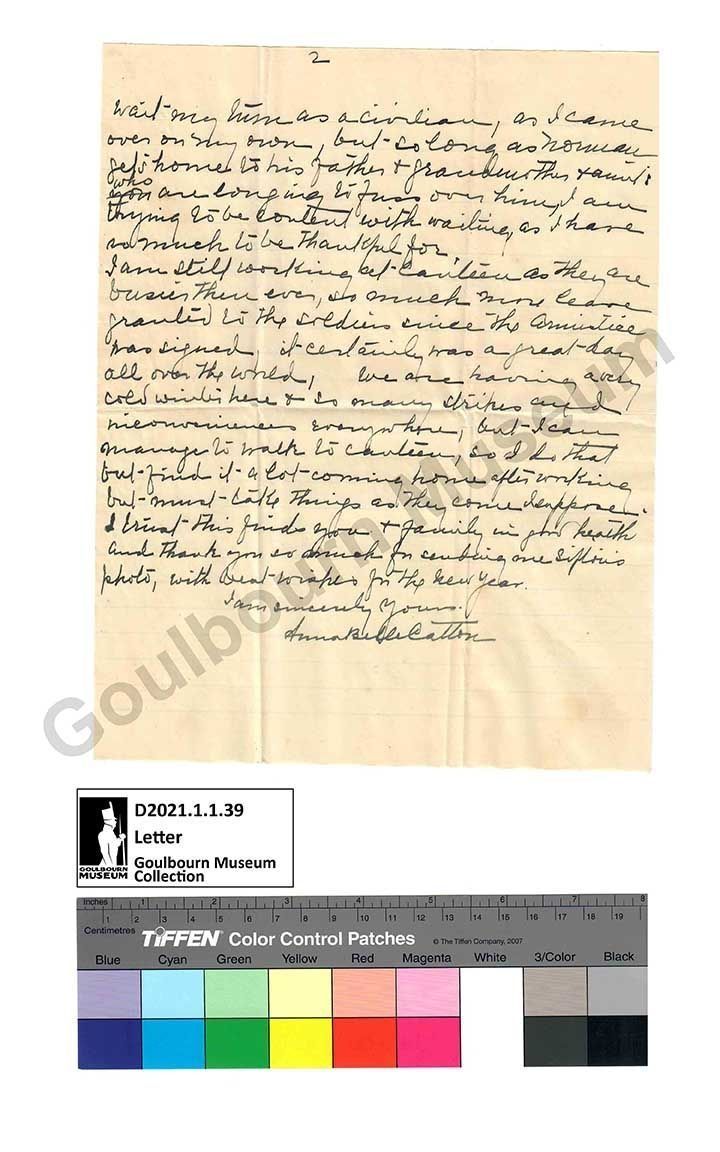 2
wait my turn as a civilian, as I came
over on my own, but so long as Norman
gets home to his father & grandmother & aunts
who
you are longing to fuss over him, I am
trying to be content with waiting, as I have
so much to be thankful for,
I am still working at Canteen as they are
busier then ever, so much more leave
granted to the soldiers since the Armistice
was signed, it certainly was a great day
all over the world, We are having a very
cold winter here & so many stripes and
inconveniences everywhere, but I can
manage to walk to canteen, so I do that
but find it a lot coming home after working
but must take things as they come I suppose.
I trust this finds you & family in good health
and thank you so much for sending me
photo, with best wishes for the New Year.
I am sincerely yours.
Annabelle Catton
Goulbourn Museum
D2021.1.1.39
Letter
Goulbourn Museum
Collection
GOULBOURN
MUSEUM
Inches 1 2 3 4 5 6 7 8
1 2 3 4 5 6 7 8 9 10 11 12 13 14 15 16 17 18 19
Centimetres
TIFFEN Color Control Patches © The Tiffen Company, 2007
Blue Cyan Green Yellow Red Magenta White 3/Color Black